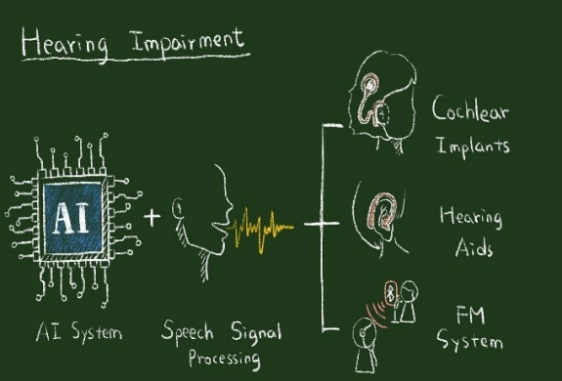 Hearing Impairment
AI
AI System
Speech Signal
Processing
Cochlear
Implants
Hearing
Aids
FM
System